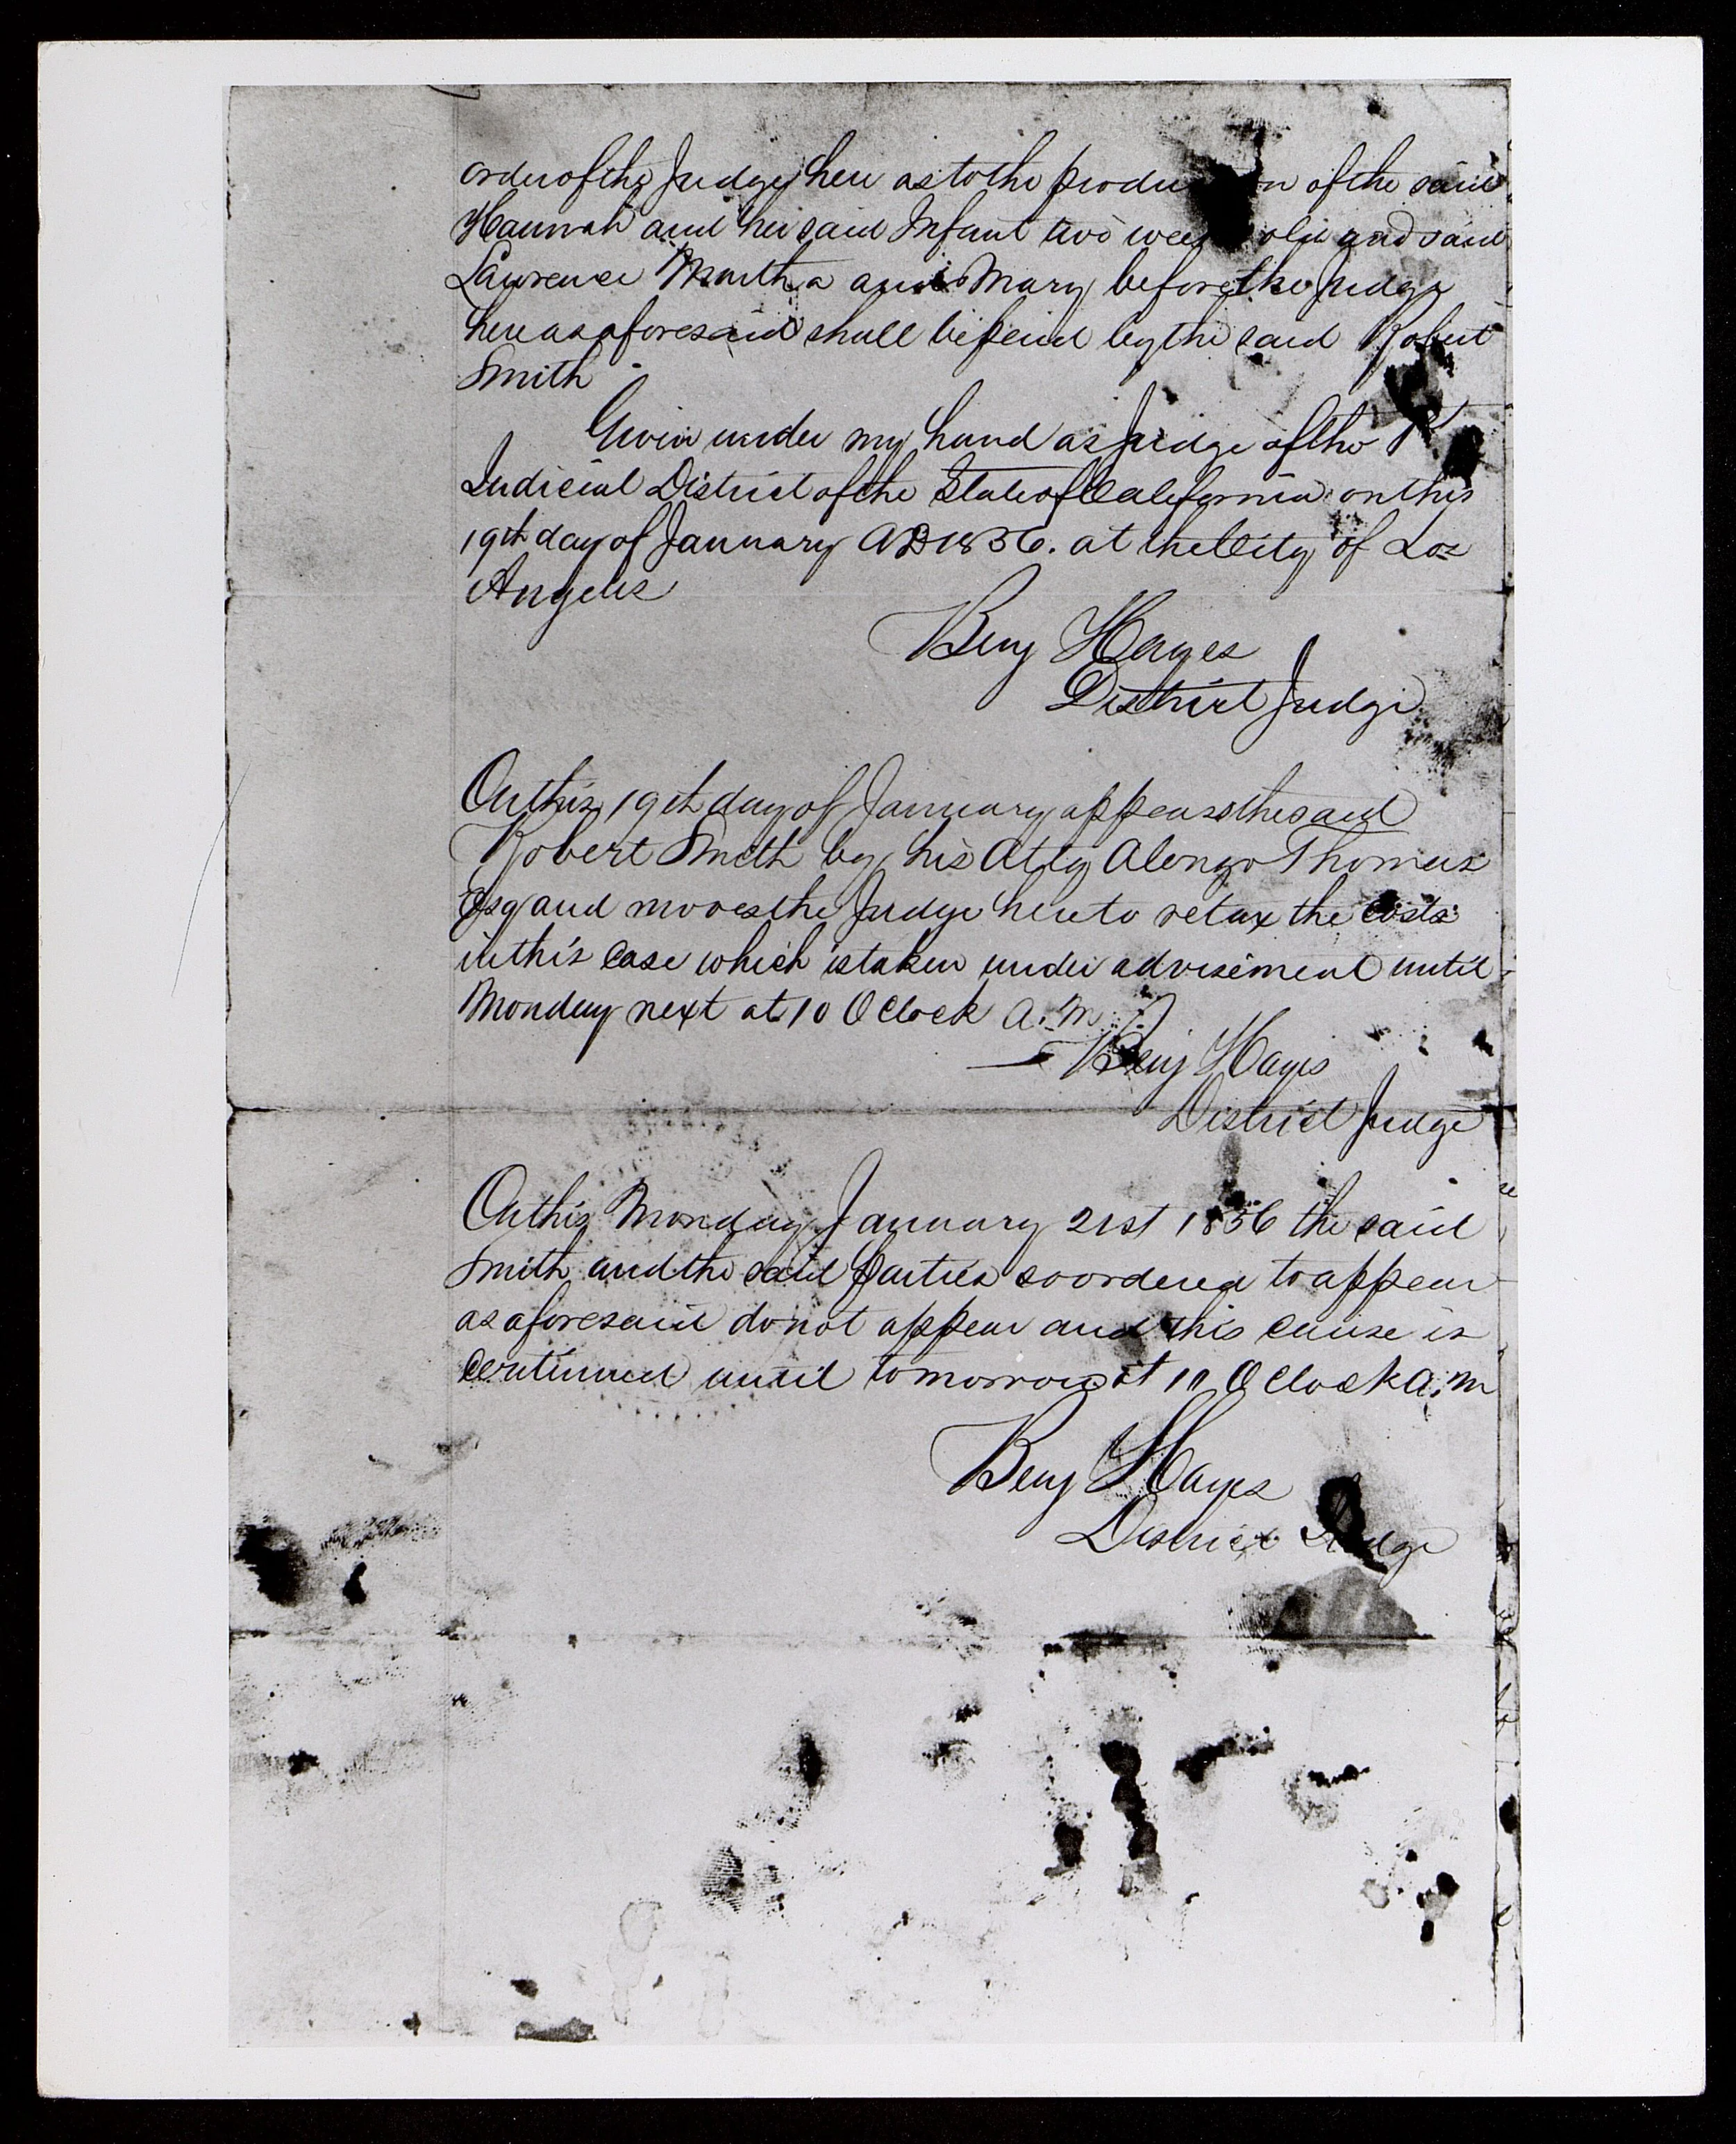 order of the Judge here as to the produ n of the said
Hannah and her said Infant two wee old and said
Lawrence Martha and Mary before the Judge
here as aforesaid shall be paid by the said Robert
Smith
Given under my hand as Judge of the 1st
Judicial District of the State of California on this
19th day of January AD 1856. at the City of Los
Angeles
Benj Hayes
District Judge
On this 19th day of January appears the said
Robert Smith by his Atty Alonzo Thomas
Esq and moves the Judge here to retax the costs
in this case which is taken under advisement until
Monday next at 10 O Clock A.M.
Benj Hayes
District Judge
On this Monday January 21st 1856 the said
Smith and the said parties so ordered to appear
as aforesaid do not appear and this cause is
continued until tomorrow at 10 O Clock A.M
Benj Hayes
District Judge